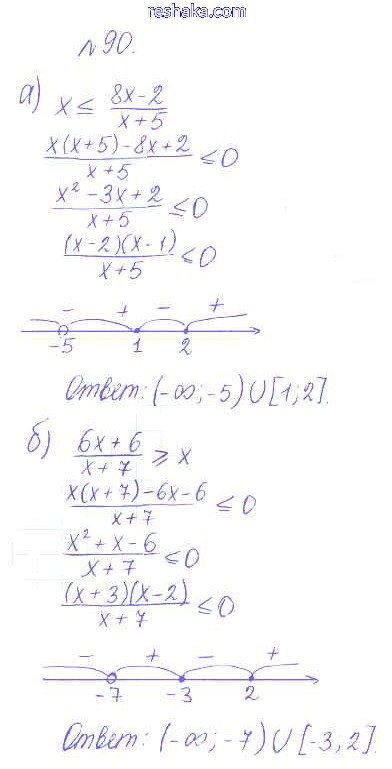 reshaka.com
№90.
а) x ≤ (8x-2)/(x+5)
(x(x+5)-8x+2)/(x+5) ≤ 0
(x² -3x+2)/(x+5) ≤ 0
((x-2)(x-1))/(x+5) ≤ 0
- + - +
-5 1 2
Ответ: (-∞;-5) ∪ [1;2].
б) (6x+6)/(x+7) ≥ x
(x(x+7)-6x-6)/(x+7) ≤ 0
(x² + x-6)/(x+7) ≤ 0
((x+3)(x-2))/(x+7) ≤ 0
- + - +
-7 -3 2
Ответ: (-∞;-7) ∪ [-3;2].